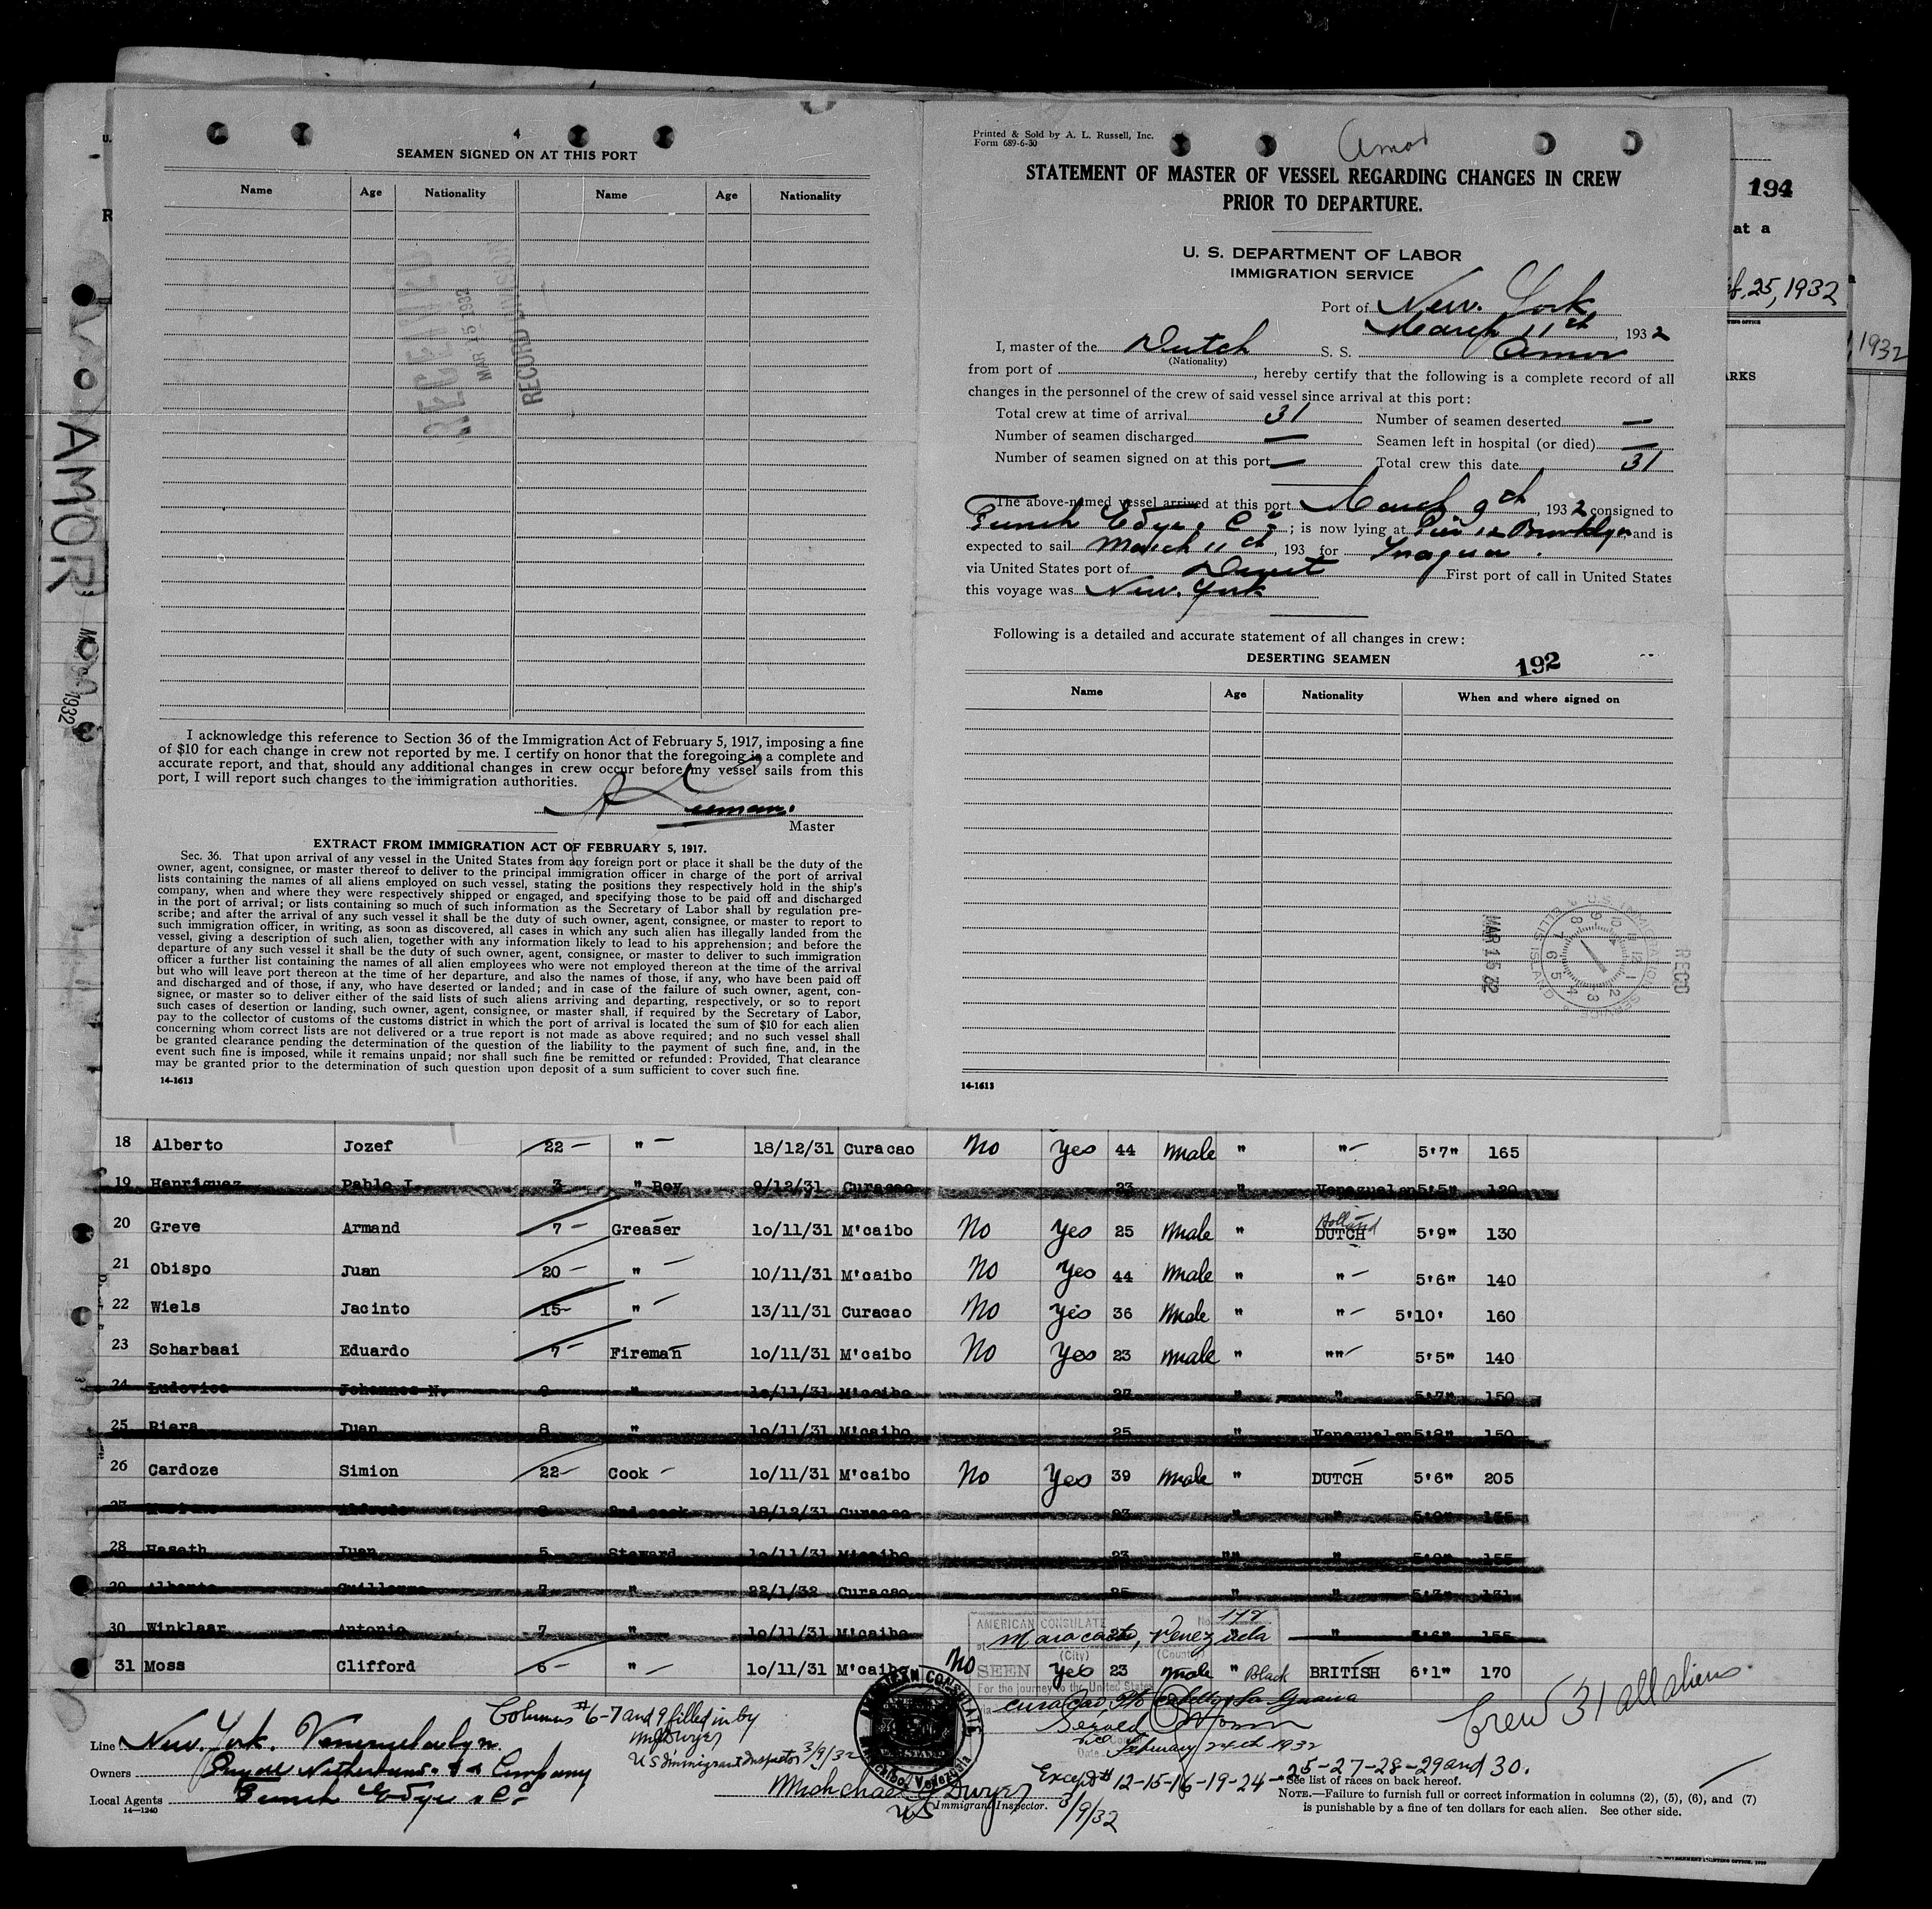 4
SEAMEN SIGNED ON AT THIS PORT
Name Age Nationality Name Age Nationality
RECEIVED
MAR 15 1932
RECORD DIVISION
I acknowledge this reference to Section 36 of the Immigration Act of February 5, 1917, imposing a fine
of $10 for each change in crew not reported by me. I certify on honor that the foregoing is a complete and
accurate report, and that, should any additional changes in crew occur before my vessel sails from this
port, I will report such changes to the immigration authorities.
Master
EXTRACT FROM IMMIGRATION ACT OF FEBRUARY 5, 1917.
Sec. 36. That upon arrival of any vessel in the United States from any foreign port or place it shall be the duty of the
owner, agent, consignee, or master thereof to deliver to the principal immigration officer in charge of the port of arrival
lists containing the names of all aliens employed on such vessel, stating the positions they respectively hold in the ship's
company, when and where they were respectively shipped or engaged, and specifying those to be paid off and discharged
in the port of arrival; or lists containing so much of such information as the Secretary of Labor shall by regulation pre-
scribe; and after the arrival of any such vessel it shall be the duty of such owner, agent, consignee, or master to report to
such immigration officer, in writing, as soon as discovered, all cases in which any such alien has illegally landed from the
vessel, giving a description of such alien, together with any information likely to lead to his apprehension; and before the
departure of any such vessel it shall be the duty of such owner, agent, consignee, or master to deliver to such immigration
officer a further list containing the names of all alien employees who were not employed thereon at the time of the arrival
but who will leave port thereon at the time of her departure, and also the names of those, if any, who have been paid off
and discharged and of those, if any, who have deserted or landed; and in case of the failure of such owner, agent, con-
signee, or master so to deliver either of the said lists of such aliens arriving and departing, respectively, or so to report
such cases of desertion or landing, such owner, agent, consignee, or master shall, if required by the Secretary of Labor,
pay to the collector of customs of the customs district in which the port of arrival is located the sum of $10 for each alien
concerning whom correct lists are not delivered or a true report is not made as above required; and no such vessel shall
be granted clearance pending the determination of the question of the liability to the payment of such fine, and, in the
event such fine is imposed, while it remains unpaid; nor shall such fine be remitted or refunded: Provided, That clearance
may be granted prior to the determination of such question upon deposit of a sum sufficient to cover such fine.
14-1613
Printed & Sold by A. L. Russell, Inc.
Form 689-6-30
Amor
STATEMENT OF MASTER OF VESSEL REGARDING CHANGES IN CREW
PRIOR TO DEPARTURE.
U. S. DEPARTMENT OF LABOR
IMMIGRATION SERVICE
Port of New York
March 11th, 1932
I, master of the Dutch S. S. Amor
(Nationality)
from port of , hereby certify that the following is a complete record of all
changes in the personnel of the crew of said vessel since arrival at this port:
Total crew at time of arrival 31 Number of seamen deserted —
Number of seamen discharged — Seamen left in hospital (or died) —
Number of seamen signed on at this port — Total crew this date 31
The above-named vessel arrived at this port March 9th, 1932 consigned to
Funch Edye & Co; is now lying at Pier 12 Brooklyn and is
expected to sail March 11th, 193 for
via United States port of Direct First port of call in United States
this voyage was New York
Following is a detailed and accurate statement of all changes in crew:
DESERTING SEAMEN 192
Name Age Nationality When and where signed on
MAR 15 32
REC'D
IMMIGRATION SERVICE
ELLIS ISLAND
14-1613
194
at a
25, 1932
1932
ARKS
AMOR
1932
18 Alberto Jozef 22 — " — 18/12/31 Curacao No Yes 44 Male " " — 5'7" 165
19 Henriquez Pablo I. 3 " Boy 9/12/31 Curacao 23 " Venezuelan 5'5" 120
20 Greve Armand 7 — Greaser 10/11/31 M'caibo No Yes 25 Male " Holland DUTCH 5'9" 130
21 Obispo Juan 20 — " — 10/11/31 M'caibo No Yes 44 Male " " — 5'6" 140
22 Wiels Jacinto 15 — " — 13/11/31 Curacao No Yes 36 Male " " — 5'10' 160
23 Scharbaai Eduardo 7 — Fireman 10/11/31 M'caibo No Yes 23 Male " "" — 5'5" 140
24 Ludovica Johannes N. 9 " 10/11/31 M'caibo 27 " " 5'7" 150
25 Riera Juan 8 " 10/11/31 M'caibo 25 " Venezuelan 5'8" 150
26 Cardoze Simion 22 — Cook — 10/11/31 M'caibo No Yes 39 Male " DUTCH 5'6" 205
27 Alfredo 2nd cook 18/12/31 Curacao 23 " "
28 Haseth Juan 5 Steward 10/11/31 M'caibo 23 "" " 155
29 Alberto Guillermo 7 " 22/1/32 Curacao 25 " " 5'3" 131
30 Winklaar Antonio 7 " 10/11/31 M'caibo " " 155
31 Moss Clifford 6 — " — 10/11/31 M'caibo No Yes 23 Male " Black BRITISH 6'1" 170
AMERICAN CONSULATE No. 178
at Maracaibo, Venezuela
(City) (Country)
SEEN
For the journey to the United States
via Curacao, Pto Cabello & La Guaira
Date February 24th 1932
AMERICAN CONSULATE
Maracaibo, Venezuela
Crew 31 all aliens
Columns #6-7 and 9 filled in by
MJ Dwyer
US Immigrant Inspector 3/9/32
Line New York. Venezuela lyn.
Owners Royal Netherlands Company
Local Agents Funch Edye & Co
14-1240
Michael J Dwyer
US Immigrant Inspector. 3/9/32
Except # 12-15-16-19-24-25-27-28-29 and 30.
*See list of races on back hereof.
NOTE.—Failure to furnish full or correct information in columns (2), (5), (6), and (7)
is punishable by a fine of ten dollars for each alien. See other side.